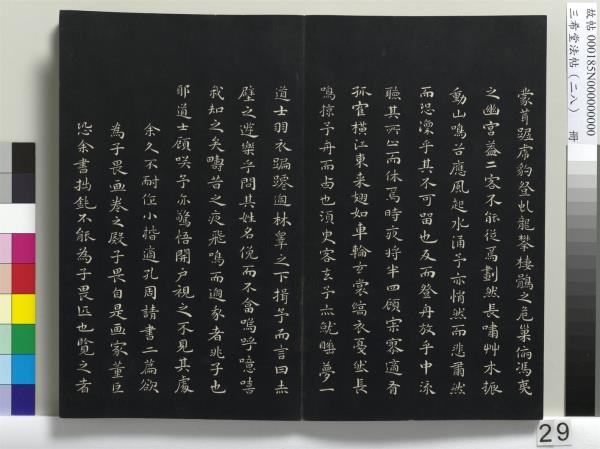 蒙茸踞虎豹登虬龍攀棲鶻之危巢俯馮夷
之幽宮蓋二客不能從焉劃然長嘯艸木振
動山鳴谷應風起水涌予亦悄然而悲肅然
而恐凜乎其不可留也反而登舟放乎中流
聽其所止而休焉時夜將半四顧寂寥適有
孤隺橫江東來翅如車輪玄裳縞衣戛然長
鳴掠予舟而西也須臾客去予亦就睡夢一
道士羽衣蹁躚過林皋之下揖予而言曰赤
壁之遊樂乎問其姓名俛而不畣嗚呼噫嘻
我知之矣疇昔之夜飛鳴而過我者非子也
耶道士顧咲予亦驚悟開戶視之不見其處
余久不耐作小楷適孔周請書二篇欲
為子畏畫卷之殿子畏自是畫家董巨
恐余書拙鈍不能為子畏匹也覽之者
故帖000185N000000000
三希堂法帖(二八) 冊
29